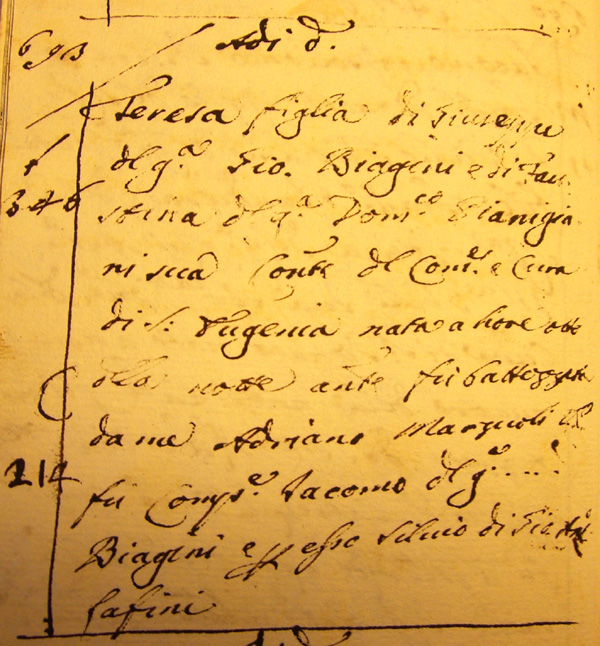 693
Adi d.
Teresa figlia di Giuseppe
del q. Gio. Biagini e di Fau
stina del q. Dom.co Gianigia
346
ni sua Cons.te del Com.e e Cura
di S. Eugenia nata a hore otto
della notte ant.e fu battezzata
da me Adriano
214
fu Comp.e Iacomo del q. .....
Biagini e p esso Silvio di
Safini